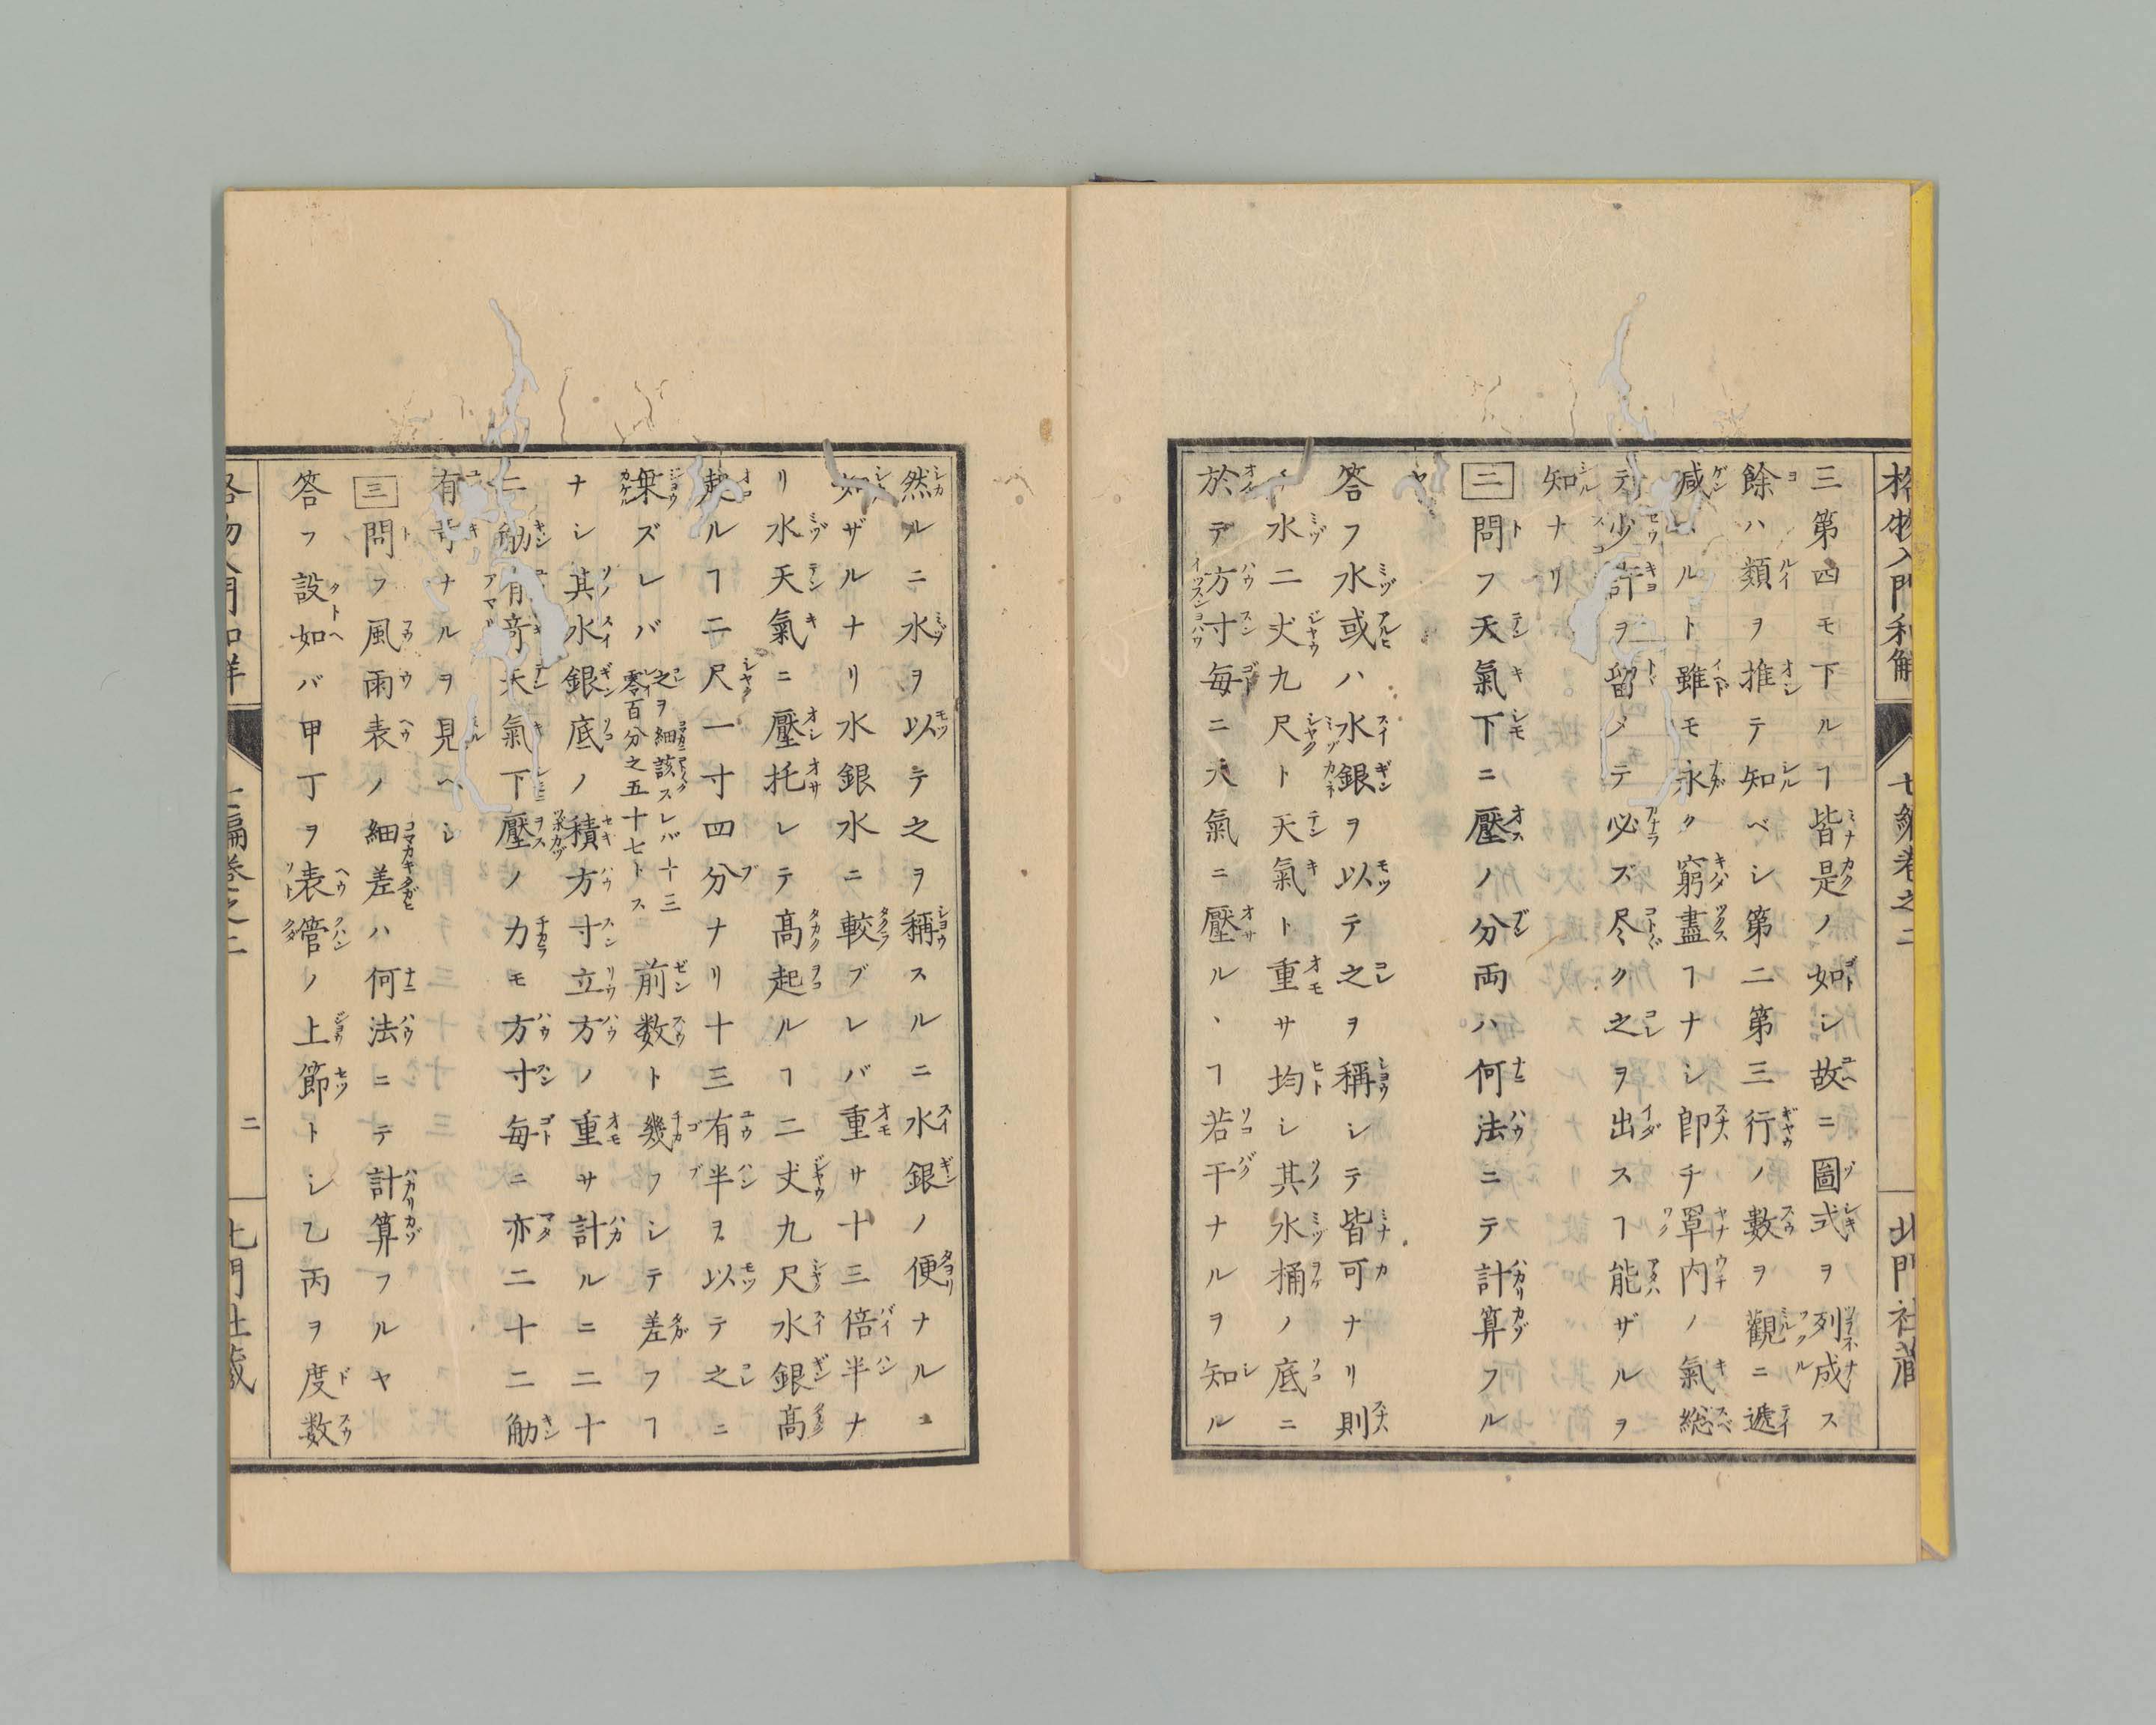 格物入門和解
七編巻之二
北門社蔵
三第四モ下ルヿ皆是ノ如シ故ニ圖式ヲ列成ス
餘ハ類ヲ推テ知ベシ第二第三行ノ數ヲ觀ニ遞
减ルト雖モ永ク窮盡ヿナシ卽チ罩内ノ氣総
テ少許ヲ留メテ必ズ尽ク之ヲ出スヿ能ザルヲ
知ナリ
二問フ天氣下ニ壓ノ分両ハ何法ニテ計算フル
ヤ
答フ水或ハ水銀ヲ以テ之ヲ稱シテ皆可ナリ則
水二丈九尺ト天氣ト重サ均シ其水桶ノ底ニ
於テ方寸毎ニ天氣ニ壓ル丶ヿ若干ナルヲ知ル
然ルニ水ヲ以テ之ヲ稱スルニ水銀ノ便ナルニ
如ザルナリ水銀水ニ較ブレバ重サ十三倍半ナ
リ水天氣ニ壓托レテ高起ルヿ二丈九尺水銀高
起ルヿ二尺一寸四分ナリ十三有半ヲ以テ之ニ
乗ズレバ之ヲ細該スレバ十三零百分之五十七トス前数ト幾フシテ差フヿ
ナシ其水銀底ノ積方寸立方ノ重サ計ルニ二十
二觔有奇天氣下壓ノ力モ方寸毎ニ亦二十二觔
有奇ナルヲ見ヘシ
三問フ風雨表ノ細差ハ何法ニテ計算フルヤ
答フ設如バ甲丁ヲ表管ノ上節トシ乙丙ヲ度数
二
北門社蔵